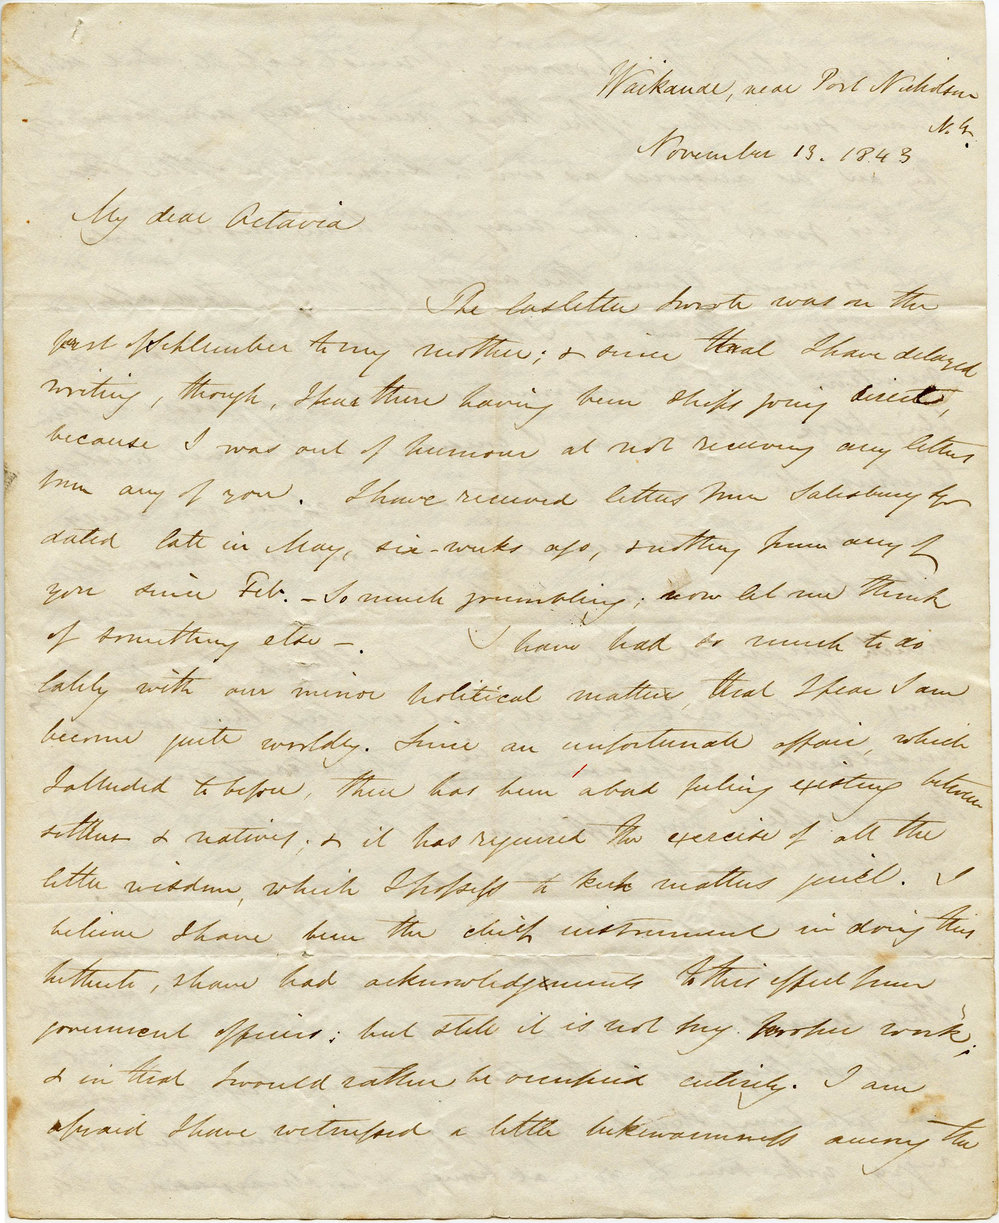 Waikanae, near Port Nicholson
N.Z.
November 13. 1843
My dear Octavia
The last letter I wrote was on the
first of September to my mother; & since that I have delayed
writing, though, I fear there having been ships going direct,
because I was out of humour at not receiving any letters
from any of you. I have received letters from Salisbury Sqr
dated late in May, six-weeks ago, & nothing from any of
you since Feb. - So much grumbling; now let me think
of something else -. I have had so much to do
lately with our minor political matters, that I fear I am
become quite worldly. Since an unfortunate affair, which
I alluded to before, there has been a bad feeling existing between
settlers & natives; & it has required the exercise of all the
little wisdom, which I possess to keep matters quiet. I
believe I have been the chief instrument in doing this
hitherto, & have had acknowledgements to this effect from
government officers: but still it is not my proper work;
& in that I would rather be occupied entirely. I am
afraid I have witnessed a little lukewarmness among the